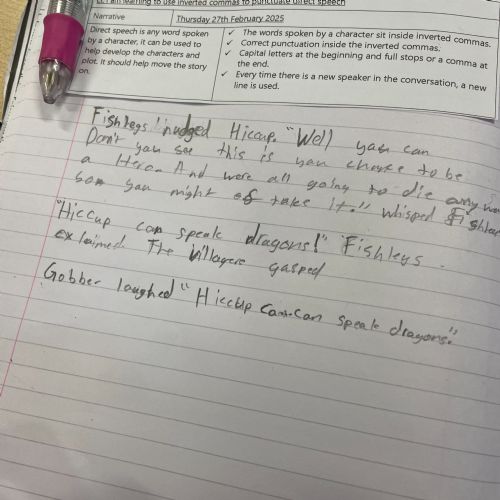 LI: I am learning to use inverted commas to punctuate direct speech
Narrative
Thursday 27th February 2025
Direct speech is any word spoken
by a character, it can be used to
help develop the characters and
plot. It should help move the story
on.
✓ The words spoken by a character sit inside inverted commas.
✓ Correct punctuation inside the inverted commas.
✓ Capital letters at the beginning and full stops or a comma at
the end.
✓ Every time there is a new speaker in the conversation, a new
line is used.
Fishlegs nudged Hiccup. "Well you can
Don't you see this is you chance to be
a Hero. And were all going to die any
you might of take it." whisped
"Hiccup can speak dragons!" Fishlegs
exlaimed The villagers gasped
Gobber laughed "Hiccup can speak dragons."